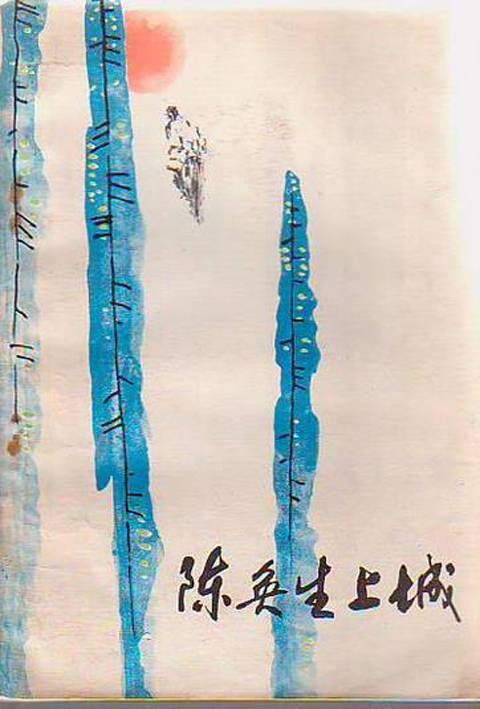 陈奂生上城